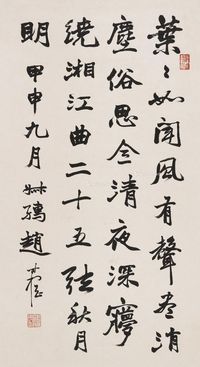 葉〻如聞風有聲盡消
塵俗思全清夜深夢
繞湘江曲二十五弦秋月
明 甲申九月 趙